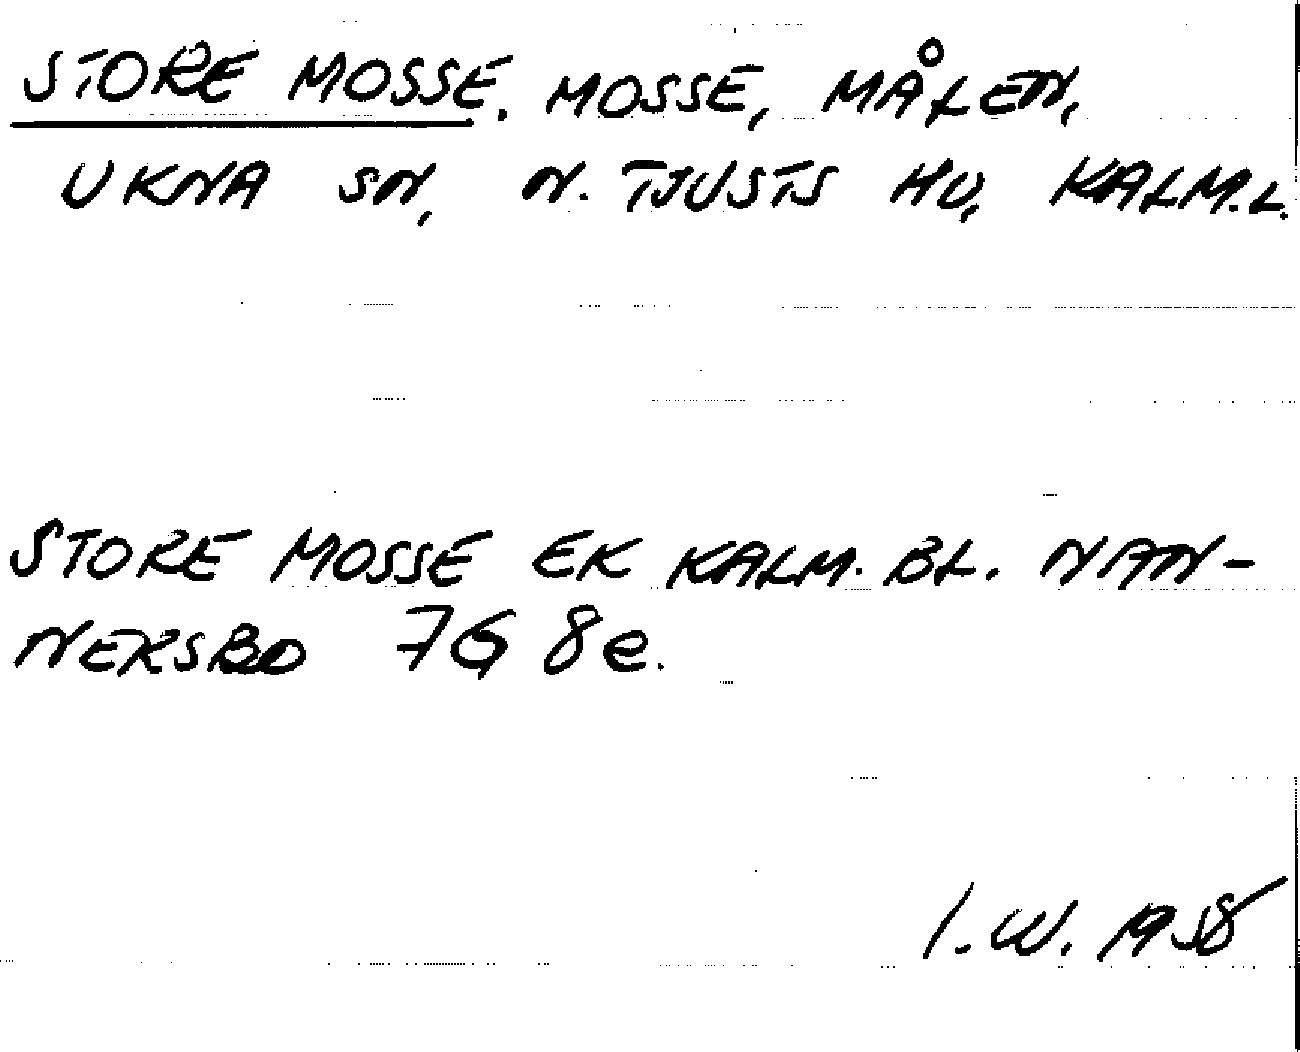 STORE MOSSE. MOSSE, MÅLEN,
UKNA SN, N. TJUSTS HD, KALM.L.
STORE MOSSE EK KALM. BL. NAN-
NEKSBO 7G 8e.
I.W. 1958